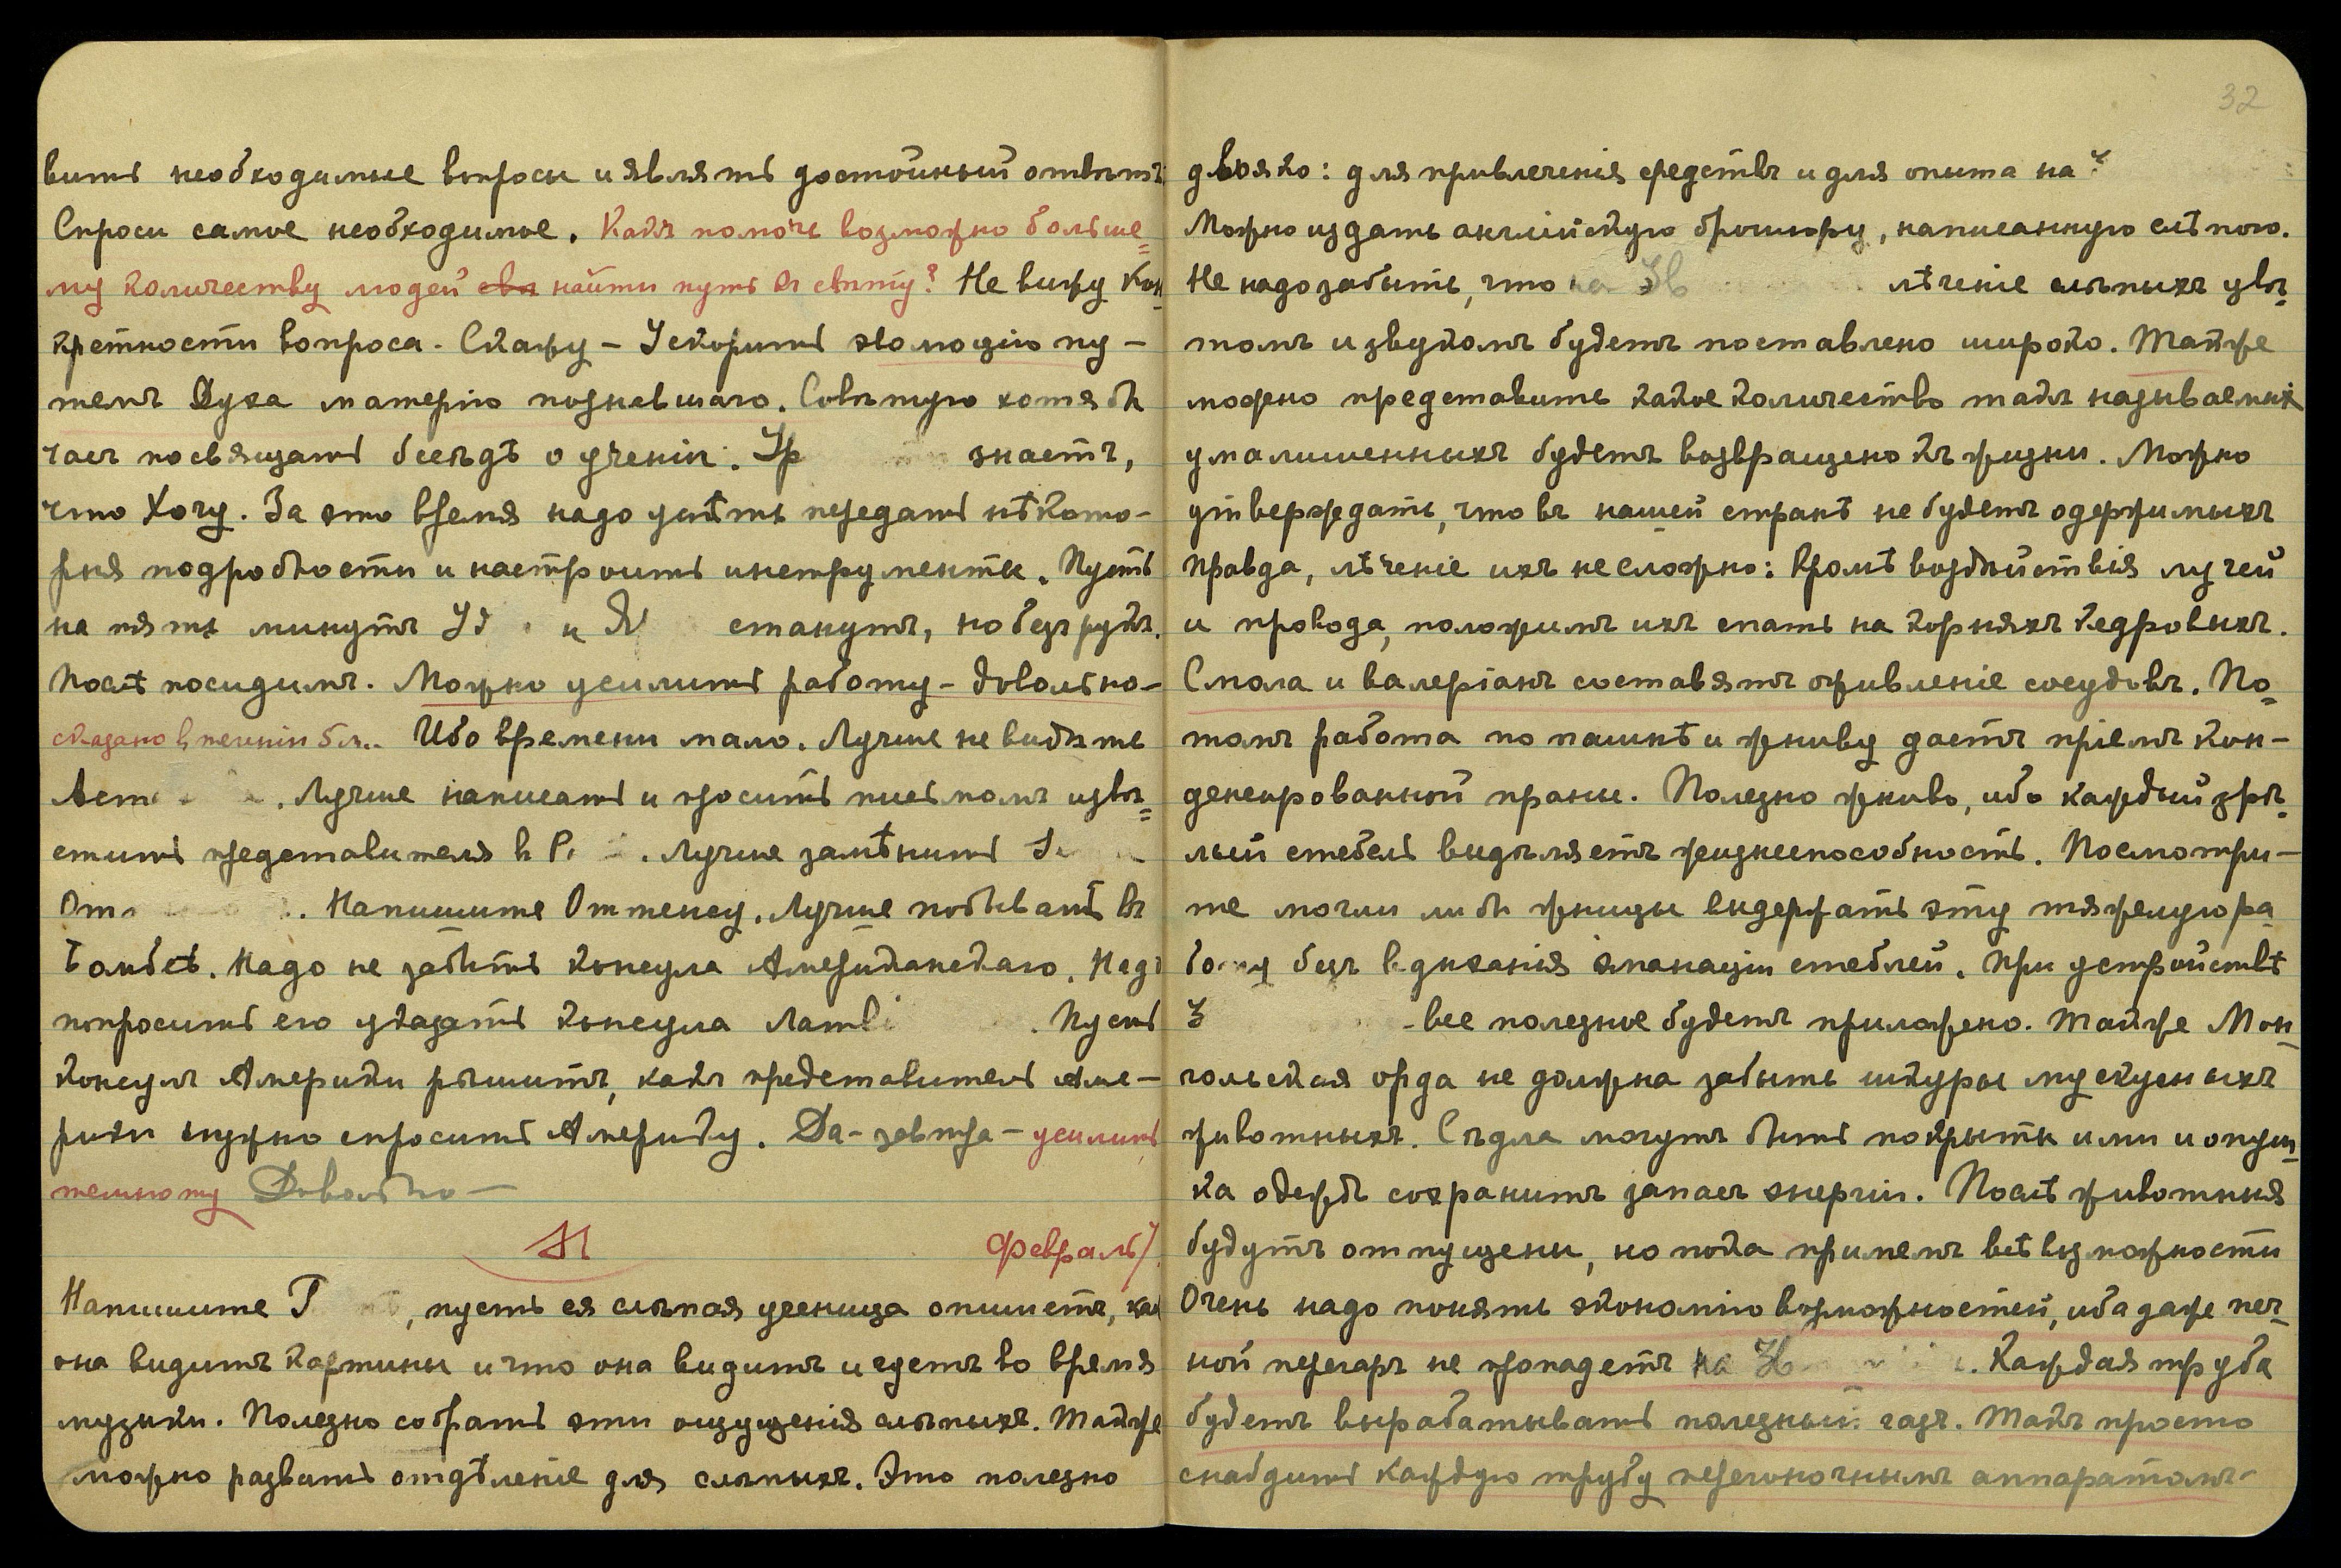 вить необходимые вопросы и являть достойный отвѣтъ
Спроси самое необходимое. Какъ помочь возможно больше=
му количеству людей найти путь къ свѣту? Не вижу кон-
кретности вопроса. Скажу – Ускорить эволюцію пу-
темъ Духа матерію познавшаго. Совѣтую хотя бы
часъ посвящать бесѣдѣ о ученіи. Ур знаетъ,
что Хочу. За это время надо успѣть передать нѣкото-
рыя подробности и настроить инструменты. Пусть
на пять минутъ Уд и Я станутъ, но безъ рукъ.
Послѣ посидимъ. Можно усилить работу – довольно –
сказано въ теченіи Ибо времени мало. Лучше не видѣть
Аст . Лучше написать и просить письмомъ извѣ=
стить представителя в Р . Лучше замѣнить
От . Напишите Оттенсу. Лучше побывать въ
Бомбеѣ. Надо не забыть консула Американскаго. Надо
попросить его указать консула Латві . Пусть
консулъ Америки рѣшитъ, какъ представитель Аме-
рики нужно спросить Америку. Да – завтра – усилить
темноту Довольно –
Февраль
Напишите Г , пусть ея слѣпая ученица опишетъ, как
она видитъ картины и что она видитъ и ѣдетъ во время
музыки. Полезно собрать эти ощущенія слѣпыхъ. Также
можно развить отдѣленіе для слѣпыхъ. Это полезно
32
двояко: для привлеченія средствъ и для опыта на
Можно издать англійскую брошюру, написанную слѣпою.
Не надо забыть, что на Зв лѣченіе слѣпыхъ цвѣ-
томъ и звукомъ будетъ поставлено широко. Также
можно представить какое количество такъ называемыхъ
умалишенныхъ будетъ возвращено къ жизни. Можно
утверждать, что въ нашей странѣ не будетъ одержимыхъ
Правда, лѣченіе ихъ не сложно: Кромѣ воздѣйствія лучей
и провода, положимъ ихъ спать на корняхъ кедровыхъ.
Смола и валеріанъ составятъ оживленіе сосудовъ. По-
томъ работа по пашнѣ и жниву даетъ пріемъ кон-
денсированной праны. Полезно жниво, ибо каждый зрѣ-
лый стебель выдѣляетъ жизнеспособность. Посмотри-
те могли ли бы жницы выдержать эту тяжелую ра
боту безъ вдыханія эманаціи стеблей. При устройствѣ
З – все полезное будетъ приложено. Также Мон-
гольская орда не должна забыть шкуры мускусныхъ
животныхъ. Сѣдла могутъ быть покрыты ими и опуш-
ка одеждъ сохранитъ запасъ энергіи. Послѣ животныя
будутъ отпущены, но пока примемъ всѣ возможности
Очень надо понять экономію возможностей, ибо даже печ-
ной перегаръ не пропадетъ на . Каждая труба
будетъ вырабатывать полезный газъ. Такъ просто
снабдить каждую трубу перегоночнымъ аппаратомъ –